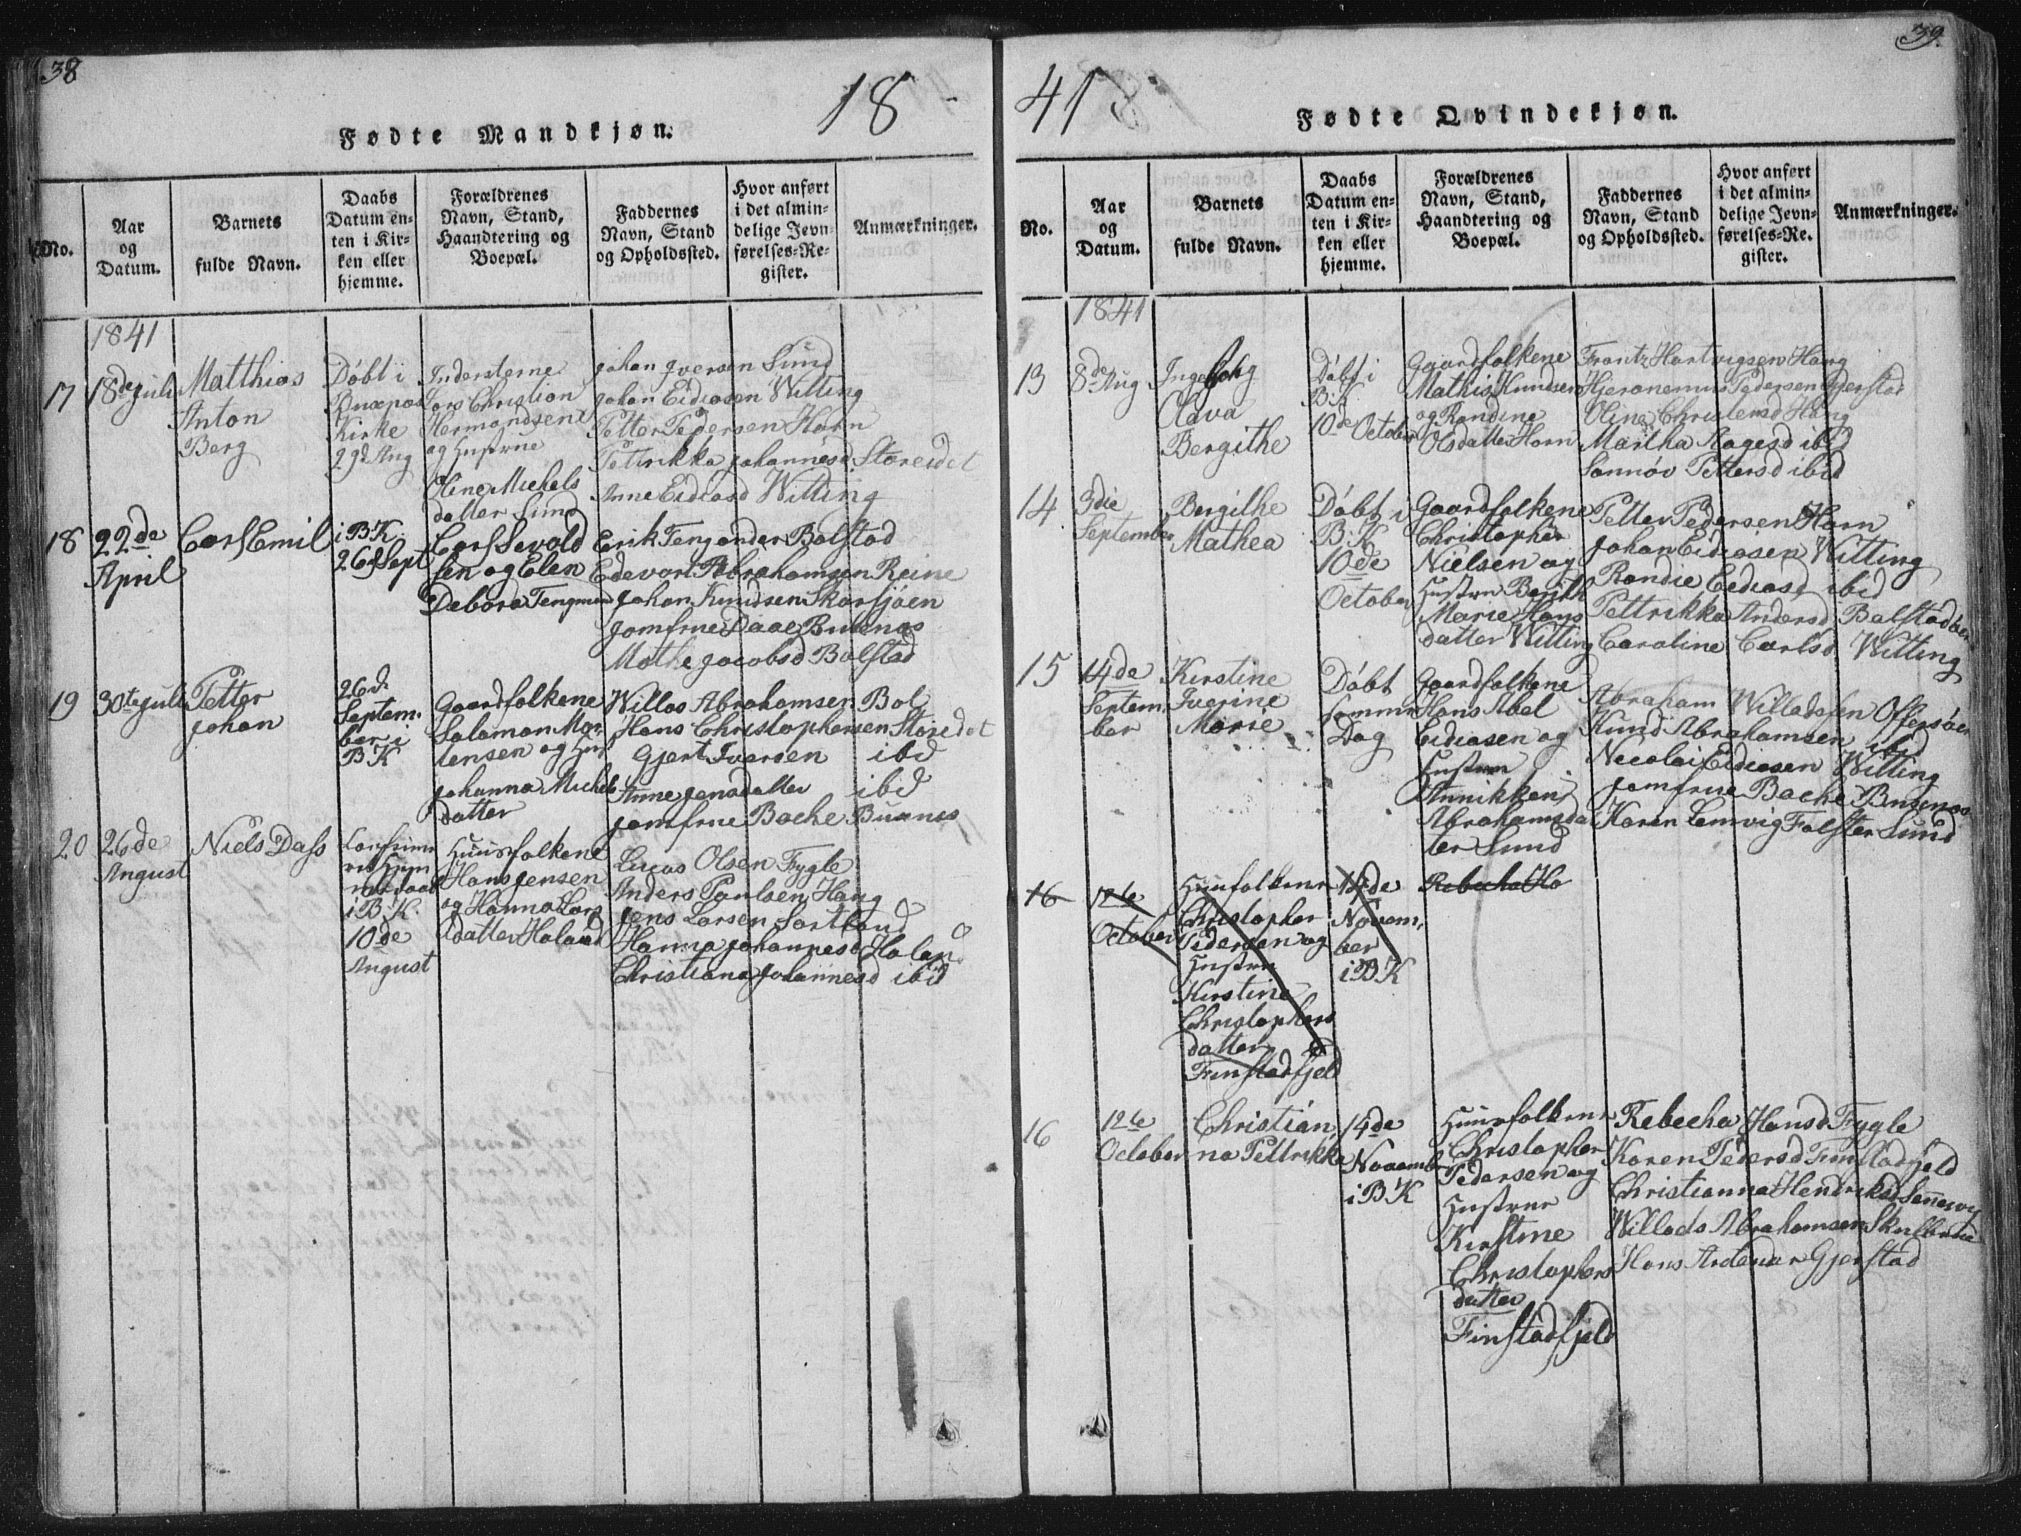 38
18
Fødte Mandkjøn.
No.
Aar
og
Datum.
Barnets
fulde Navn.
Daabs
Datum en-
ten i Kir-
ken eller
hjemme.
Forældrenes
Navn, Stand,
Haandtering og
Boepæl.
Faddernes
Navn, Stand
og Opholdssted.
Hvor anført
i det almin-
delige Jevn-
førelses-Re-
gister.
Anmærkninger.
1841
17
18de Juli
Matthias
Anton
Berg
Døbt i
Buxnæs
Kirke
29d Aug
Indersterne
Lars Christian
Hermandsen
og Hustrue
Oline Michels
datter Sund
Johan Iversen Sund
Johan Eidiasen Witting
Petter Pedersen Horn
Pettrikka Johannesd Storeidet
Anne Eidiasd Witting
18
22de
April
Carl Emil
i BK
26d Sept
Carl Sevald
sen og Elen
Debora Tengman
Erik Teng ander Balstad
Edevart Abrahamsen Reine
Johan Knudsen Skarsjøen
Jomfrue Daae Buxnæs
Mathe Jacobsd Balstad
19
30te Juli
Petter
Johan
26d
Septem-
ber i
BK
Gaardfolkene
Salamon Mor
tensen og Hus
Johanna Michels
datter
Willas Abrahamsen Bol
Hans Christophersen Storeidet
Gjert Iversen ibid
Anne Jensdatter ibid
Jomfrue Bache Buxnes
20
26de
August
Niels Dass
i BK.
10de
August
Huusfolkene
Hans Jensen
og Hanna Lars
datter Haland
Lucas Olsen Fygle
Anders Paulsen Haug
Jens Larsen Sortland
Hanna Johannesd Haland
Christiana Johannesd ibid
39.
41
Fødte Qvindekjøn.
No.
Aar
og
Datum.
Barnets
fulde Navn.
Daabs
Datum en-
ten i Kir-
ken eller
hjemme.
Forældrenes
Navn, Stand,
Haandtering og
Boepæl.
Faddernes
Navn, Stand
og Opholdssted.
Hvor anført
i det almin-
delige Jevn-
førelses-Re-
gister.
Anmærkninger.
1841
13
8de Aug
Ingeborg
Olava
Bergithe
Døbt i
B.K
10de October
Gaardfolkene
Mathis Knudsen
og Randine
Olsdatter Horn
Frantz Hartvigsen Haug
Hieronemus Pedersen Gjerstad
Oline Christensd Haug
Martha Aagesd ibid
Sønnøv Pettersd ibid
14
3die
September
Bergithe
Mathea
Døbt i
B.K
10de
October
Gaardfolkene
Christopher
Nielsen og
Hustrue Berith
Marie Hans
datter Witting
Petter Pedersen Horn
Johan Eidiasen Witting
Randie Eidiasd ibid
Pettrikka Andersd Balstad
Caroline Carlsd Witting
15
14de
Septem-
ber
Kirstine
Iverine
Marie
Døbt
samme
Dag
Gaardfolkene
Hans Abel
Eidiasen og
Hustrue
Annikken
Abrahamsda
ter Sund
Abraham Willadsen Offersøen
Knud Abrahamsen ibid
Nicolai Eidiasen Witting
Jomfrue Bache Buxnæs
Karen Lemvig Falster Sund
16
12te
October
Huusfolkene
Christopher
Pedersen og
Hustrue
Kirstine
Christophers
datter
Finstadfjeld
14de
Novem-
ber
i BK
Rebecha Ha
16
12te
October
Christian
na Pettrikke
14de
November
i BK
Huusfolkene
Christopher
Pedersen og
Hustrue
Kirstine
Christophers
datter
Finstadfjeld
Rebecha Hansd Fygle
Karen Pedersd Finstadfjeld
Christianna Hendriksd Sennesvig
Willads Abrahamsen Skulbrue
Hans Ardenar Gjerstad